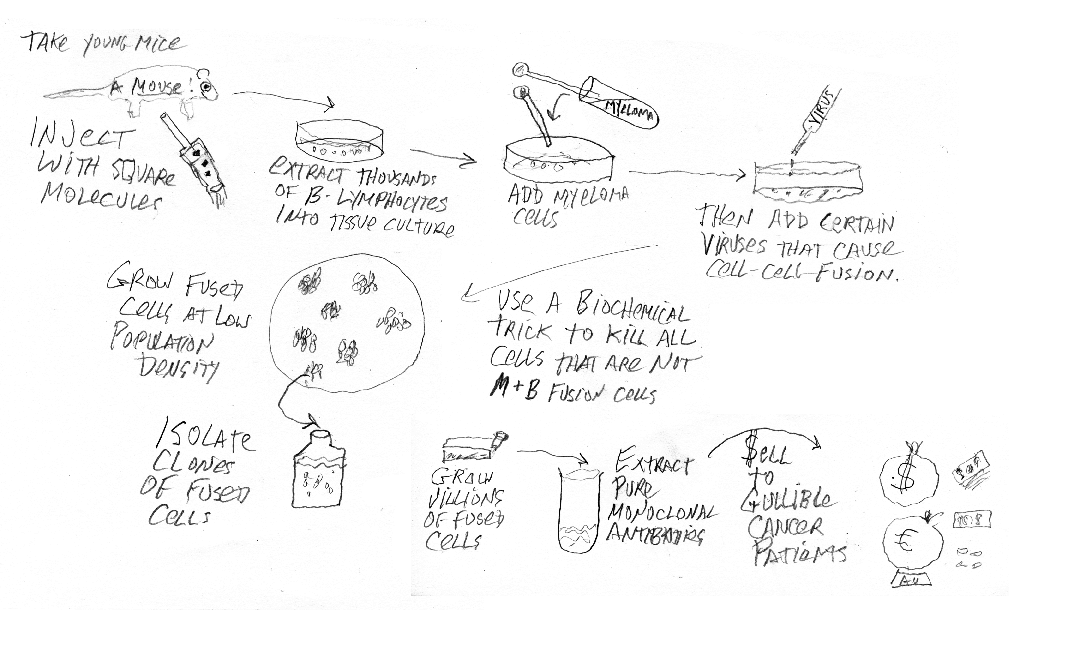 TAKE YOUNG MICE
A MOUSE!
INJECT
WITH SQUARE
MOLECULES
EXTRACT THOUSANDS
OF B-LYMPHOCYTES
INTO TISSUE CULTURE
MYELOMA
ADD MYELOMA
CELLS
VIRUS
THEN ADD CERTAIN
VIRUSES THAT CAUSE
CELL-CELL-FUSION.
USE A BIOCHEMICAL
TRICK TO KILL ALL
CELLS THAT ARE NOT
M+B FUSION CELLS
GROW FUSED
CELLS AT LOW
POPULATION
DENSITY
ISOLATE
CLONES
OF FUSED
CELLS
GROW
VILLIONS
OF FUSED
CELLS
EXTRACT
PURE
MONOCLONAL
ANTIBODIES
$ELL
TO
GULLIBLE
CANCER
PATIENTS
$
€
AU